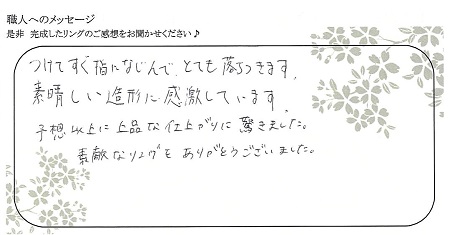 職人へのメッセージ
是非 完成したリングのご感想をお聞かせください♪
つけてすぐ指になじんで、とても落ちつきます。
素晴しい造形に感激しています。
予想以上に上品な仕上がりに驚きました。
素敵なリングをありがとうございました。